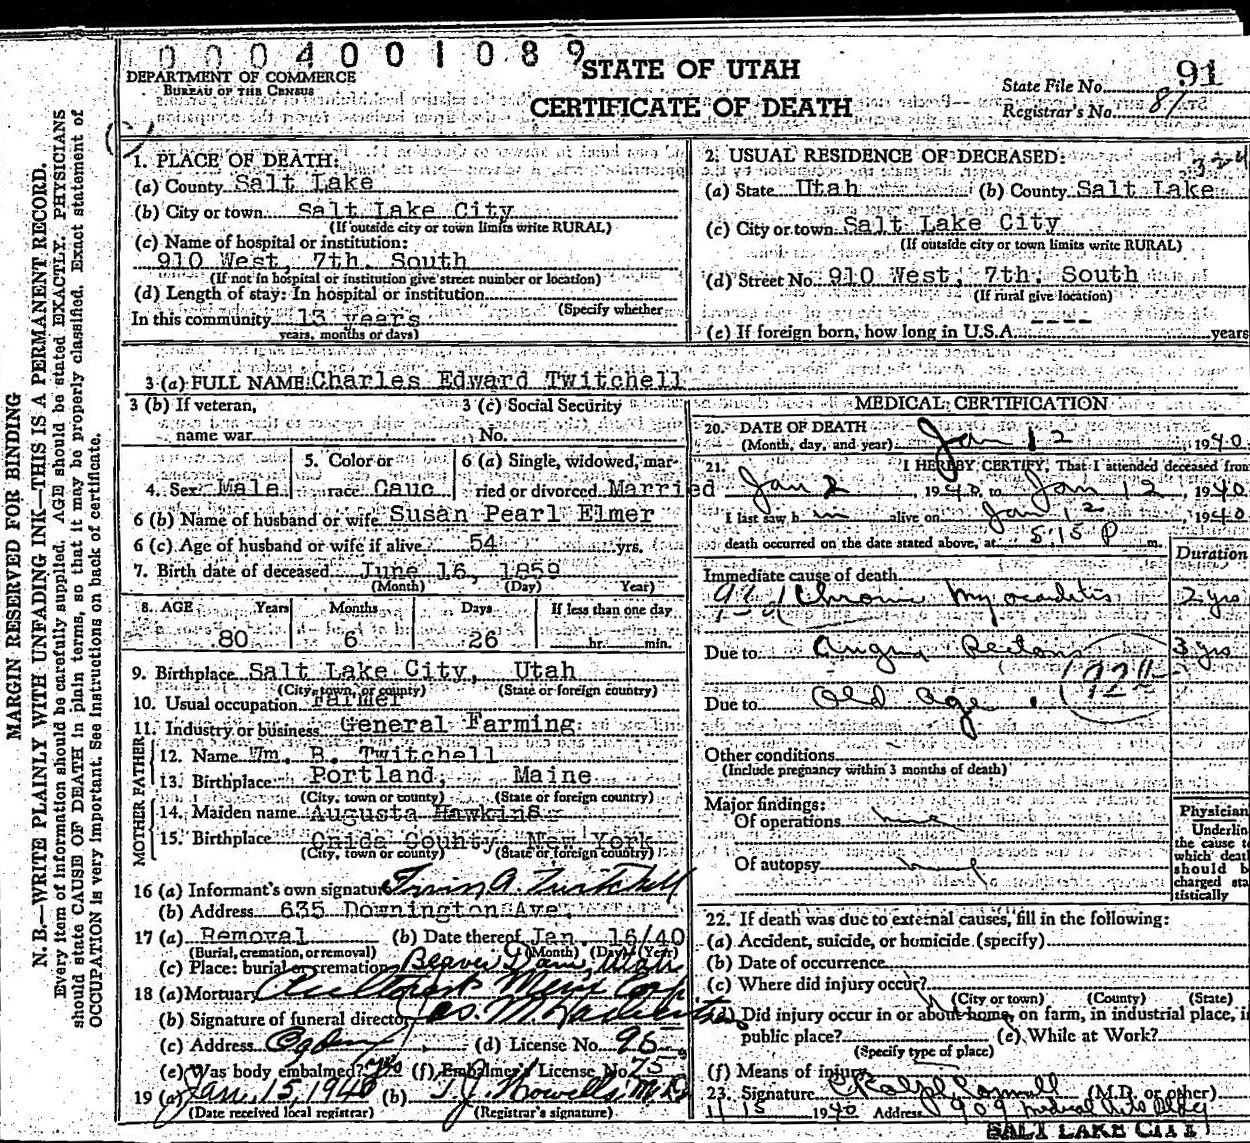 0004001089
DEPARTMENT OF COMMERCE
BUREAU OF THE CENSUS
STATE OF UTAH
CERTIFICATE OF DEATH
91
State File No.
Registrar's No. 81
MARGIN RESERVED FOR BINDING
N. B.—WRITE PLAINLY WITH UNFADING INK—THIS IS A PERMANENT RECORD.
Every item of information should be carefully supplied. AGE should be stated EXACTLY. PHYSICIANS
should state CAUSE OF DEATH in plain terms, so that it may be properly classified. Exact statement of
OCCUPATION is very important. See instructions on back of certificate.
1. PLACE OF DEATH:
(a) County Salt Lake
(b) City or town Salt Lake City
(If outside city or town limits write RURAL)
(c) Name of hospital or institution:
910 West, 7th. South
(If not in hospital or institution give street number or location)
(d) Length of stay: In hospital or institution
(Specify whether
In this community 13 years
years, months or days)
2. USUAL RESIDENCE OF DECEASED:
(a) State Utah (b) County Salt Lake
(c) City or town Salt Lake City
(If outside city or town limits write RURAL)
(d) Street No. 910 West, 7th. South
(If rural give location)
(e) If foreign born, how long in U.S.A. ---- years
3 (a) FULL NAME Charles Edward Twitchell
3 (b) If veteran, 3 (c) Social Security
name war No.
4. Sex Male 5. Color or race Cauc 6 (a) Single, widowed, married or divorced Married
6 (b) Name of husband or wife Susan Pearl Elmer
6 (c) Age of husband or wife if alive 54 yrs.
7. Birth date of deceased June 16, 1859
(Month) (Day) Year)
8. AGE Years Months Days If less than one day
80 6 26 hr. min.
9. Birthplace Salt Lake City, Utah
(City, town, or county) (State or foreign country)
10. Usual occupation Farmer
11. Industry or business General Farming
FATHER
12. Name Wm. B. Twitchell
13. Birthplace Portland, Maine
(City, town or county) (State or foreign country)
MOTHER
14. Maiden name Augusta Hawkins
15. Birthplace Onida County New York
(City, town or county) (State or foreign country)
16 (a) Informant's own signature Twitchell
(b) Address 635 Downington Ave.
17 (a) Removal (b) Date thereof Jan. 16/40
(Burial, cremation, or removal) (Month) (Day) (Year)
(c) Place: burial or cremation Beaver Dam, Utah
18 (a) Mortuary
(b) Signature of funeral director
(c) Address Ogden (d) License No. 95
(e) Was body embalmed? yes (f) Embalmer's License No. 75
19 (a) Jan. 15, 1940 (b) T.J. Howells, M.D.
(Date received local registrar) (Registrar's signature)
MEDICAL CERTIFICATION
20. DATE OF DEATH
(Month, day, and year) Jan 12 1940
21. I HEREBY CERTIFY, That I attended deceased from
Jan 2, 1940, to Jan 12, 1940
I last saw him alive on Jan 12, 1940
death occurred on the date stated above, at 5:15 P m.
Duration
Immediate cause of death
Chronic Myocarditis 2 yrs
Due to Angina Pectoris 3 yrs
Due to Old Age
Other conditions
(Include pregnancy within 3 months of death)
Major findings:
Of operations
Of autopsy
Physician
Underlin
the cause t
which deat
should b
charged sta
tistically
22. If death was due to external causes, fill in the following:
(a) Accident, suicide, or homicide (specify)
(b) Date of occurrence
(c) Where did injury occur?
(City or town) (County) (State)
(d) Did injury occur in or about home, on farm, in industrial place, i
public place? (e) While at Work?
(Specify type of place)
(f) Means of injury
23. Signature (M.D. or other)
1/15 1940 Address 909 Medical Arts Bldg
SALT LAKE CITY